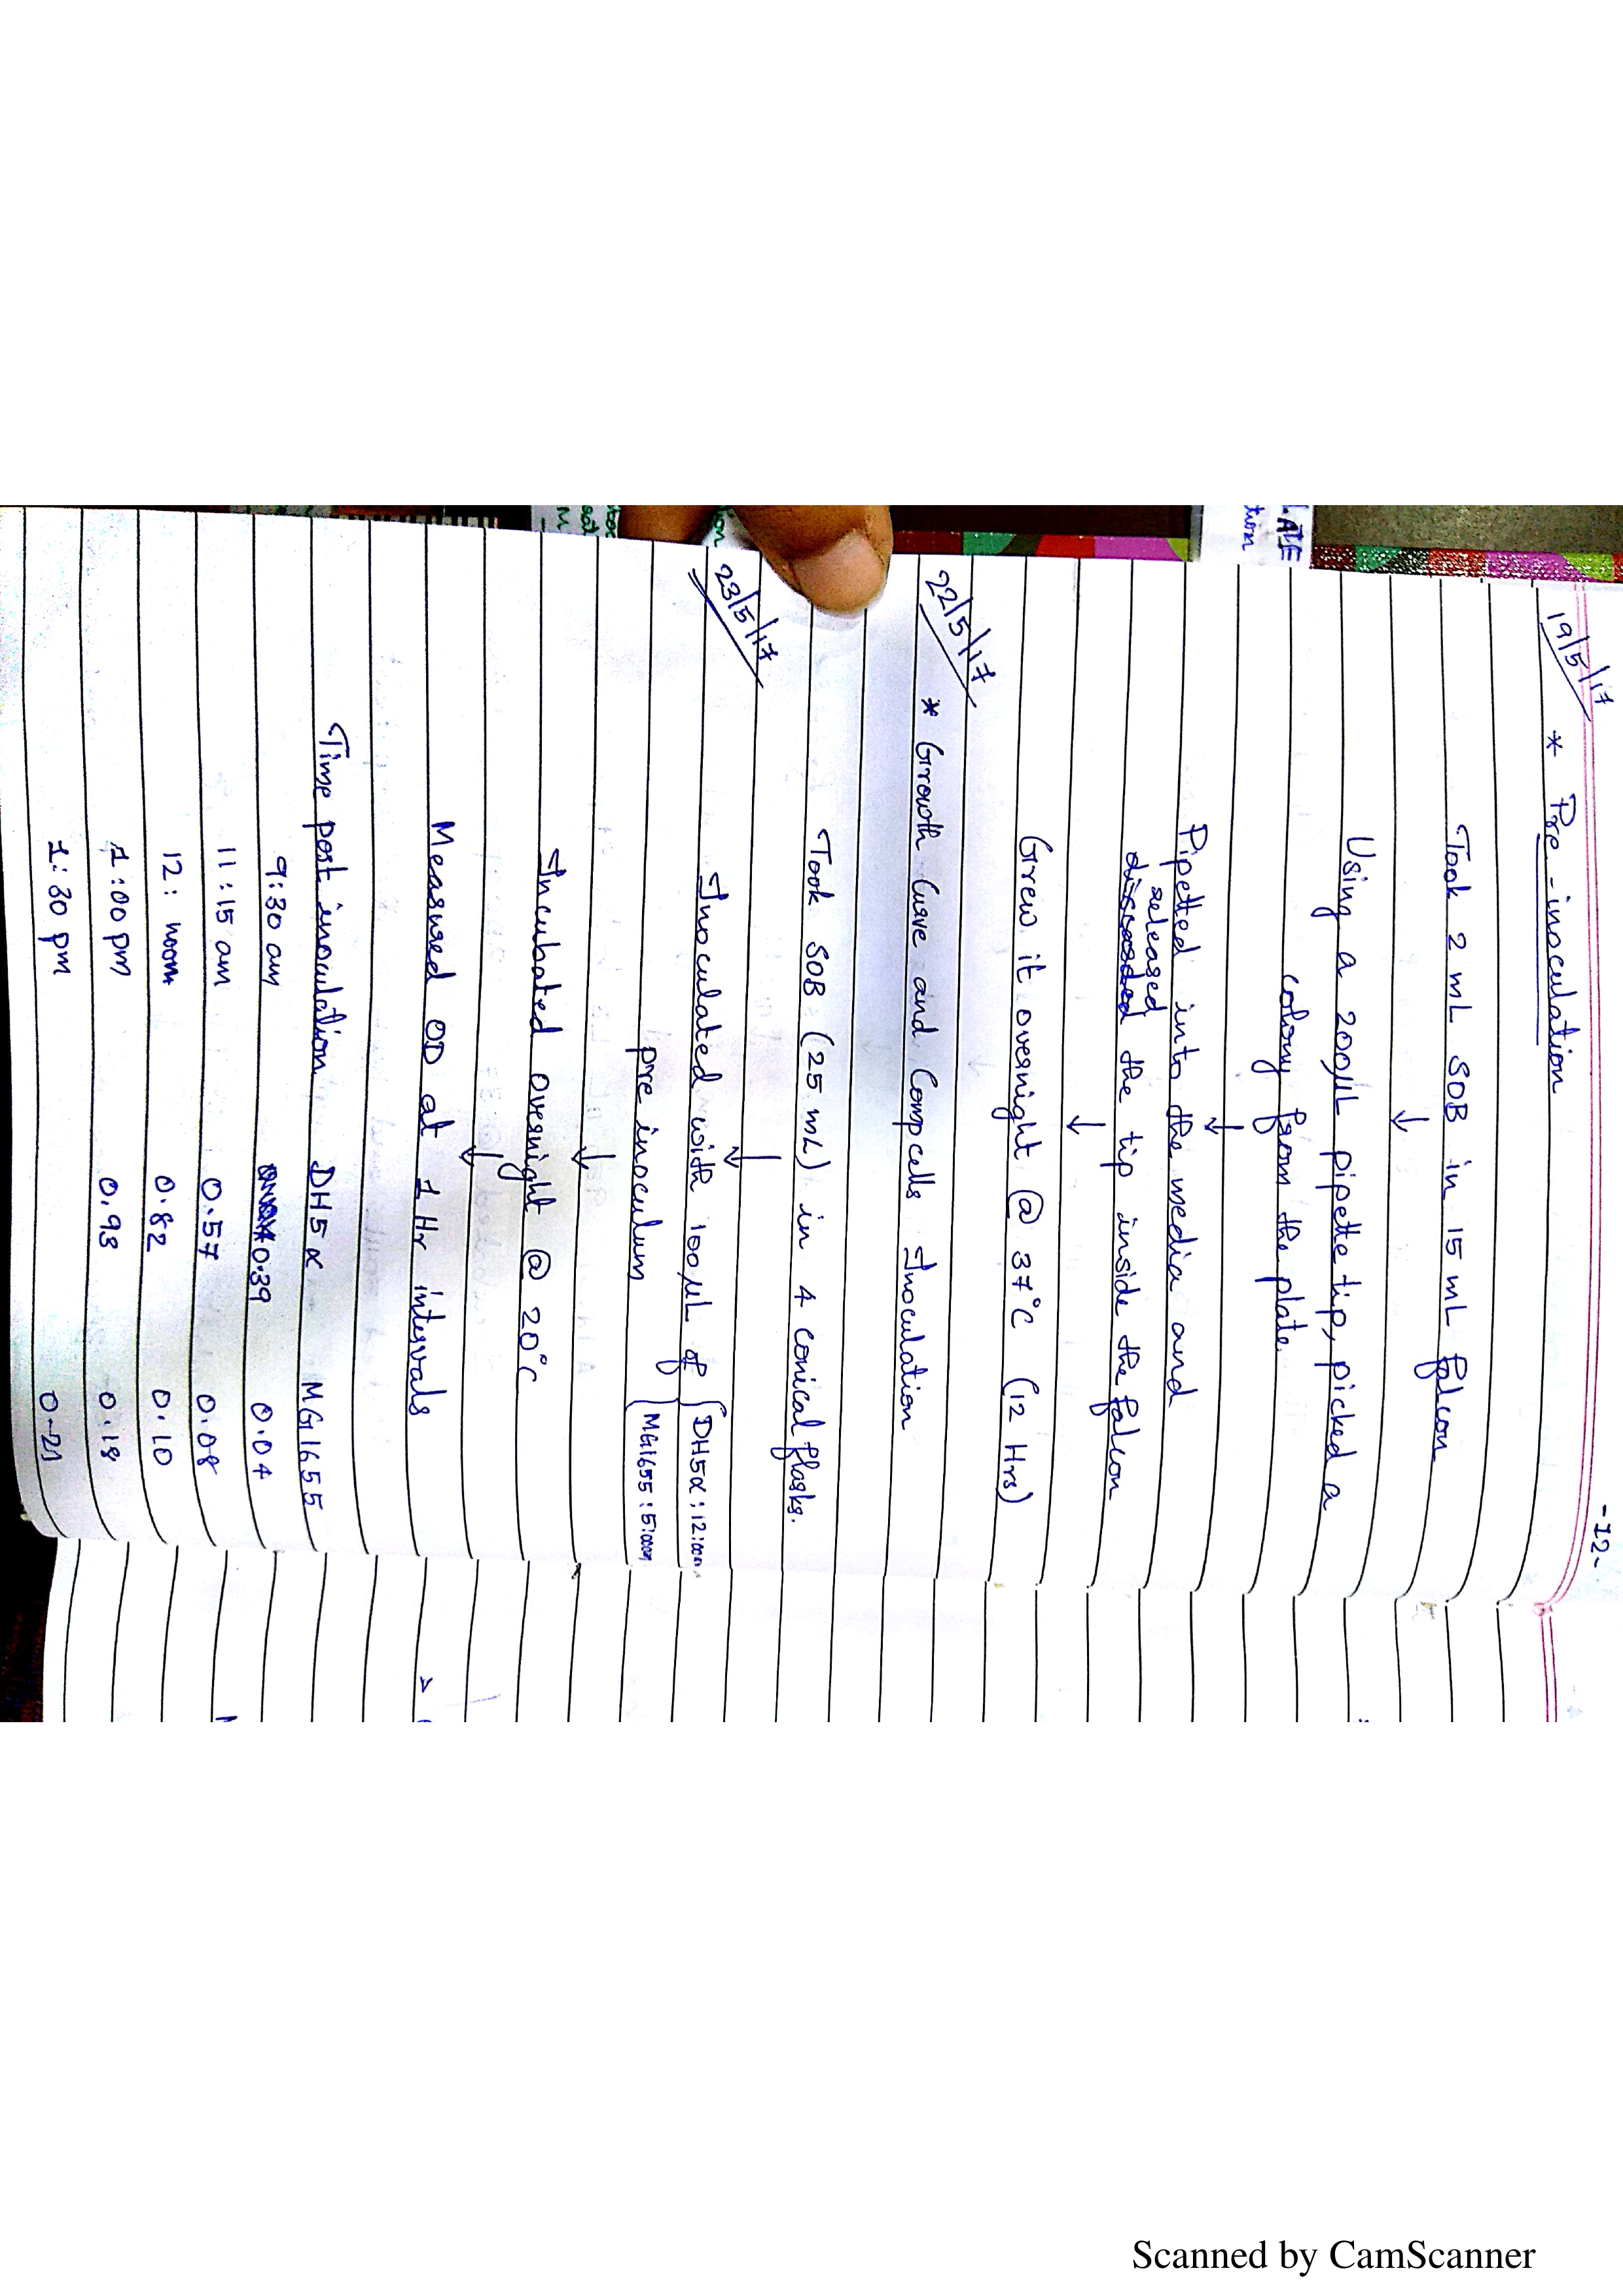 -12-
19/5/17
* Pre-inoculation
Took 2 mL SOB in 15 mL falcon
↓
Using a 200µL pipette tip, picked a
colony from the plate.
↓
Pipetted into the media and
released
the tip inside the falcon
↓
Grew it overnight @ 37°C (12 Hrs)
22/5/17
* Growth Curve and Comp cells Inoculation
Took SOB (25 mL) in 4 conical flasks.
↓
23/5/17
Inoculated with 100 µL of { DH5α : 12:00
pre inoculum { MG1655 : 5:00
↓
Incubated overnight @ 20°C
↓
Measured OD at 1 Hr intervals
Time post inoculation DH5α MG1655
9:30 am 0.39 0.04
11:15 am 0.57 0.08
12: noon 0.82 0.10
1:00 pm 0.93 0.18
1:30 pm 0.21
Scanned by CamScanner